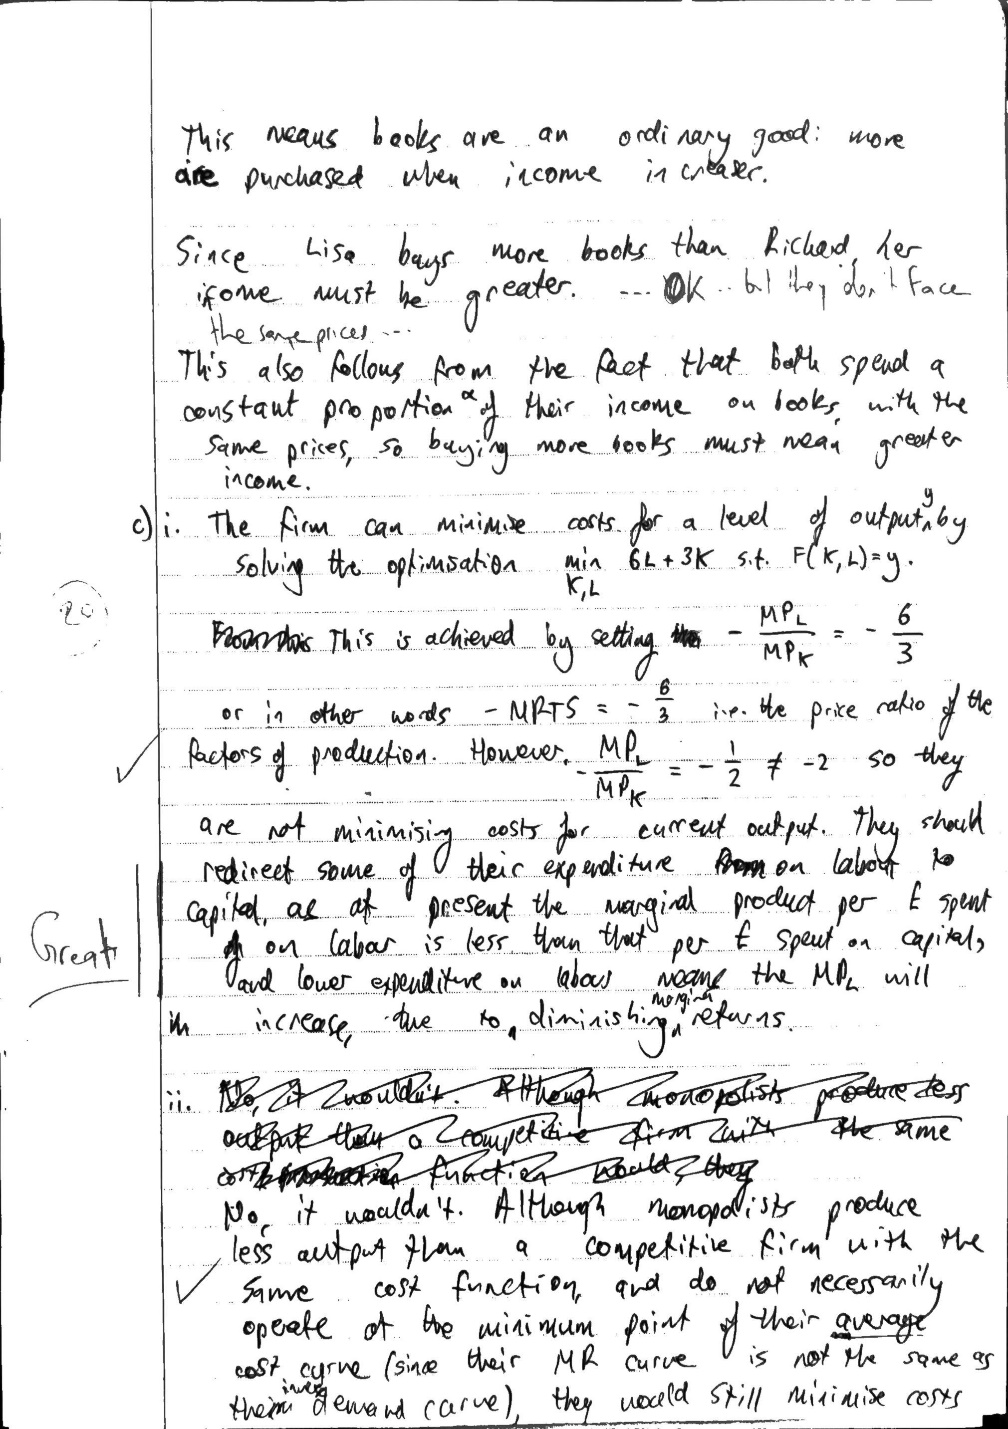 This means books are an ordinary good: more
are purchased when income increases.
Since Lisa buys more books than Richard, her
icome must be greater. ... OK .. but they don't face
the same prices ...
This also follows from the fact that both spend a
constant proportion α of their income on books, with the
same prices, so buying more books must mean greater
income.
c) i. The firm can minimise costs for a level of output y, by
solving the optimisation min 6L + 3K s.t. F(K,L)=y.
K,L
20
This is achieved by setting - MPL/MPK = - 6/3
or in other words - MRTS = - 6/3 i.e. the price ratio of the
factors of production. However, - MPL/MPK = - 1/2 ≠ -2 so they
are not minimising costs for current output. They should
redirect some of their expenditure on labour to
capital, as at present the marginal product per £ spent
Great
on labour is less than that per £ spent on capital,
and lower expenditure on labour means the MPL will
increase, due to diminishing marginal returns.
ii. No, it wouldn't. Although monopolists produce less
output than a competitive firm with the same
cost function would, they
No, it wouldn't. Although monopolists produce
less output than a competitive firm with the
same cost function, and do not necessarily
operate at the minimum point of their average
cost curve (since their MR curve is not the same as
their inverse demand curve), they would still minimise costs